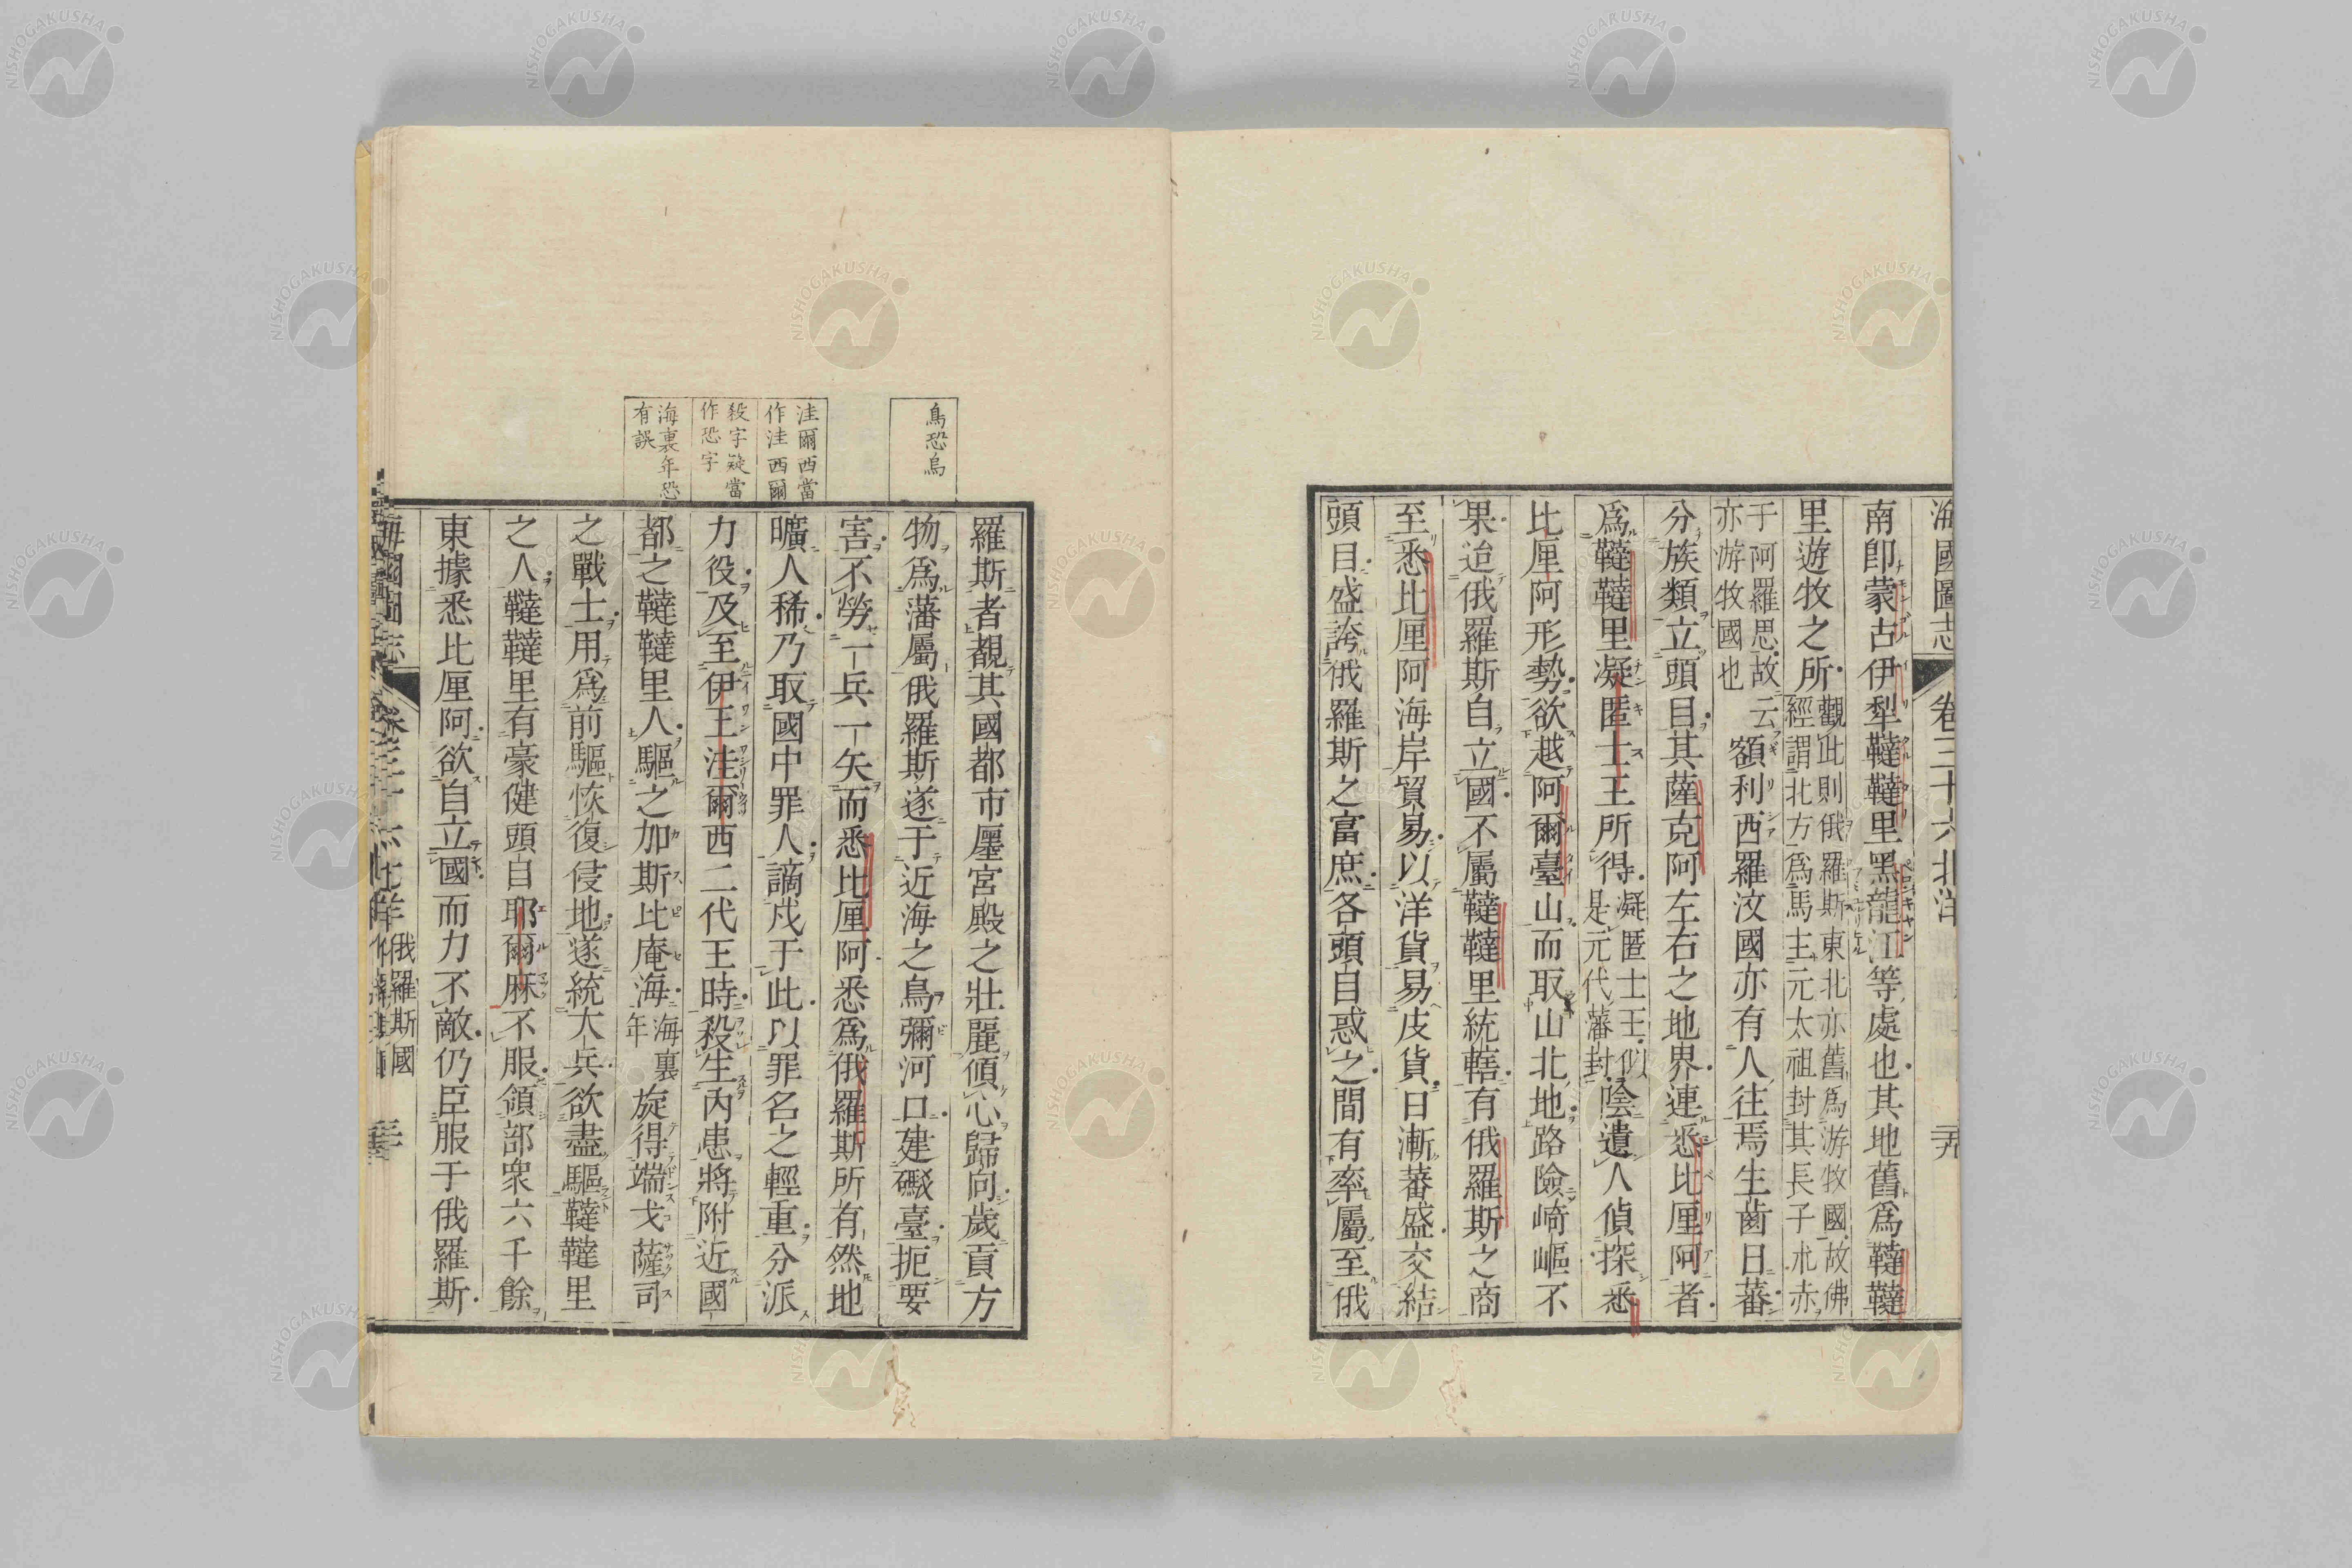 海國圖志 卷三十六 北洋
南卽蒙古伊犁韃韃里黑龍江等處也其地舊爲韃韃
里遊牧之所觀此則俄羅斯東北亦舊爲游牧國故佛
經謂北方爲馬主元太祖封其長子朮赤
于阿羅思故云
亦游牧國也
額利西羅汶國亦有人往焉生齒日蕃
分族類立頭目其薩克阿左右之地界連悉比厘阿者
爲韃韃里凝匿士王所得凝匿士王似
是元代藩封
陰遺人偵探悉
比厘阿形勢欲越阿爾臺山而取山北地路險崎嶇不
果迨俄羅斯自立國不屬韃韃里統轄有俄羅斯之商
至悉比厘阿海岸貿易以洋貨易皮貨日漸蕃盛交結
頭目盛誇俄羅斯之富庶各頭目惑之間有率屬至俄
鳥恐烏
洼爾西當
作洼西爾
殺字疑當
作恐字
海裏年恐
有誤
羅斯者覩其國都市廛宮殿之壯麗傾心歸向歲貢方
物爲藩屬俄羅斯遂于近海之鳥彌河口建礮臺扼要
害不勞一兵一矢而悉比厘阿悉爲俄羅斯所有然地
曠人稀乃取國中罪人謫戍于此以罪名之輕重分派
力役及至伊王洼爾西二代王時殺生內患將附近國
都之韃韃里人驅之加斯比庵海海裏
年
旋得端戈薩司
之戰士用爲前驅恢復侵地遂統大兵欲盡驅韃韃里
之人韃韃里有豪健頭目耶爾麻不服領部衆六千餘
東據悉比厘阿欲自立國而力不敵仍臣服于俄羅斯
海國圖志
俄羅斯國